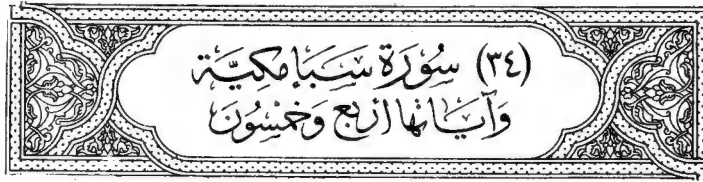 (٣٤) سُورَة سَبَإ مكيَّة
وَآيَانْهَا ارْبَع وَخَمْسُونَ